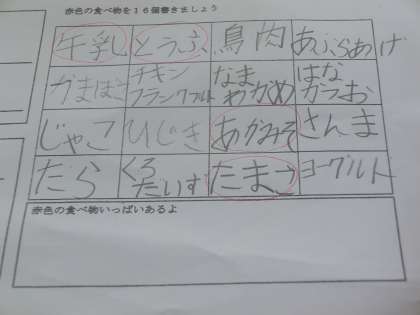 赤色の食べ物を16個書きましょう
牛乳 とうふ 鳥肉 あぶらあげ
かまぼこ チキンフランクフルト なまわかめ はなかつお
じゃこ ひじき あかみそ さんま
たら くろだいず たまご ヨーグルト
赤色の食べ物いっぱいあるよ